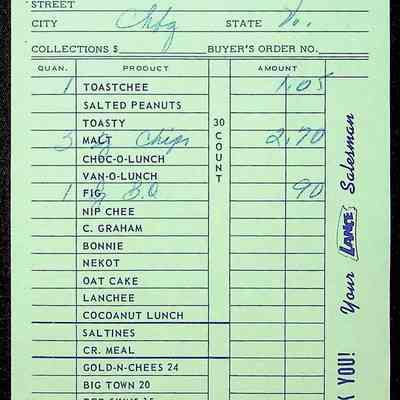 STREET
CITY Chbg STATE Va.
COLLECTIONS $ BUYER'S ORDER NO.
QUAN. PRODUCT AMOUNT
1 TOASTCHEE 1.05
SALTED PEANUTS
TOASTY
3 MALT Chips 2.70
CHOC-O-LUNCH
VAN-O-LUNCH
1 FIG B.Q 90
NIP CHEE
C. GRAHAM
BONNIE
NEKOT
OAT CAKE
LANCHEE
COCOANUT LUNCH
SALTINES
CR. MEAL
GOLD-N-CHEES 24
BIG TOWN 20
30 COUNT
YOU! Your LANCE Salesman